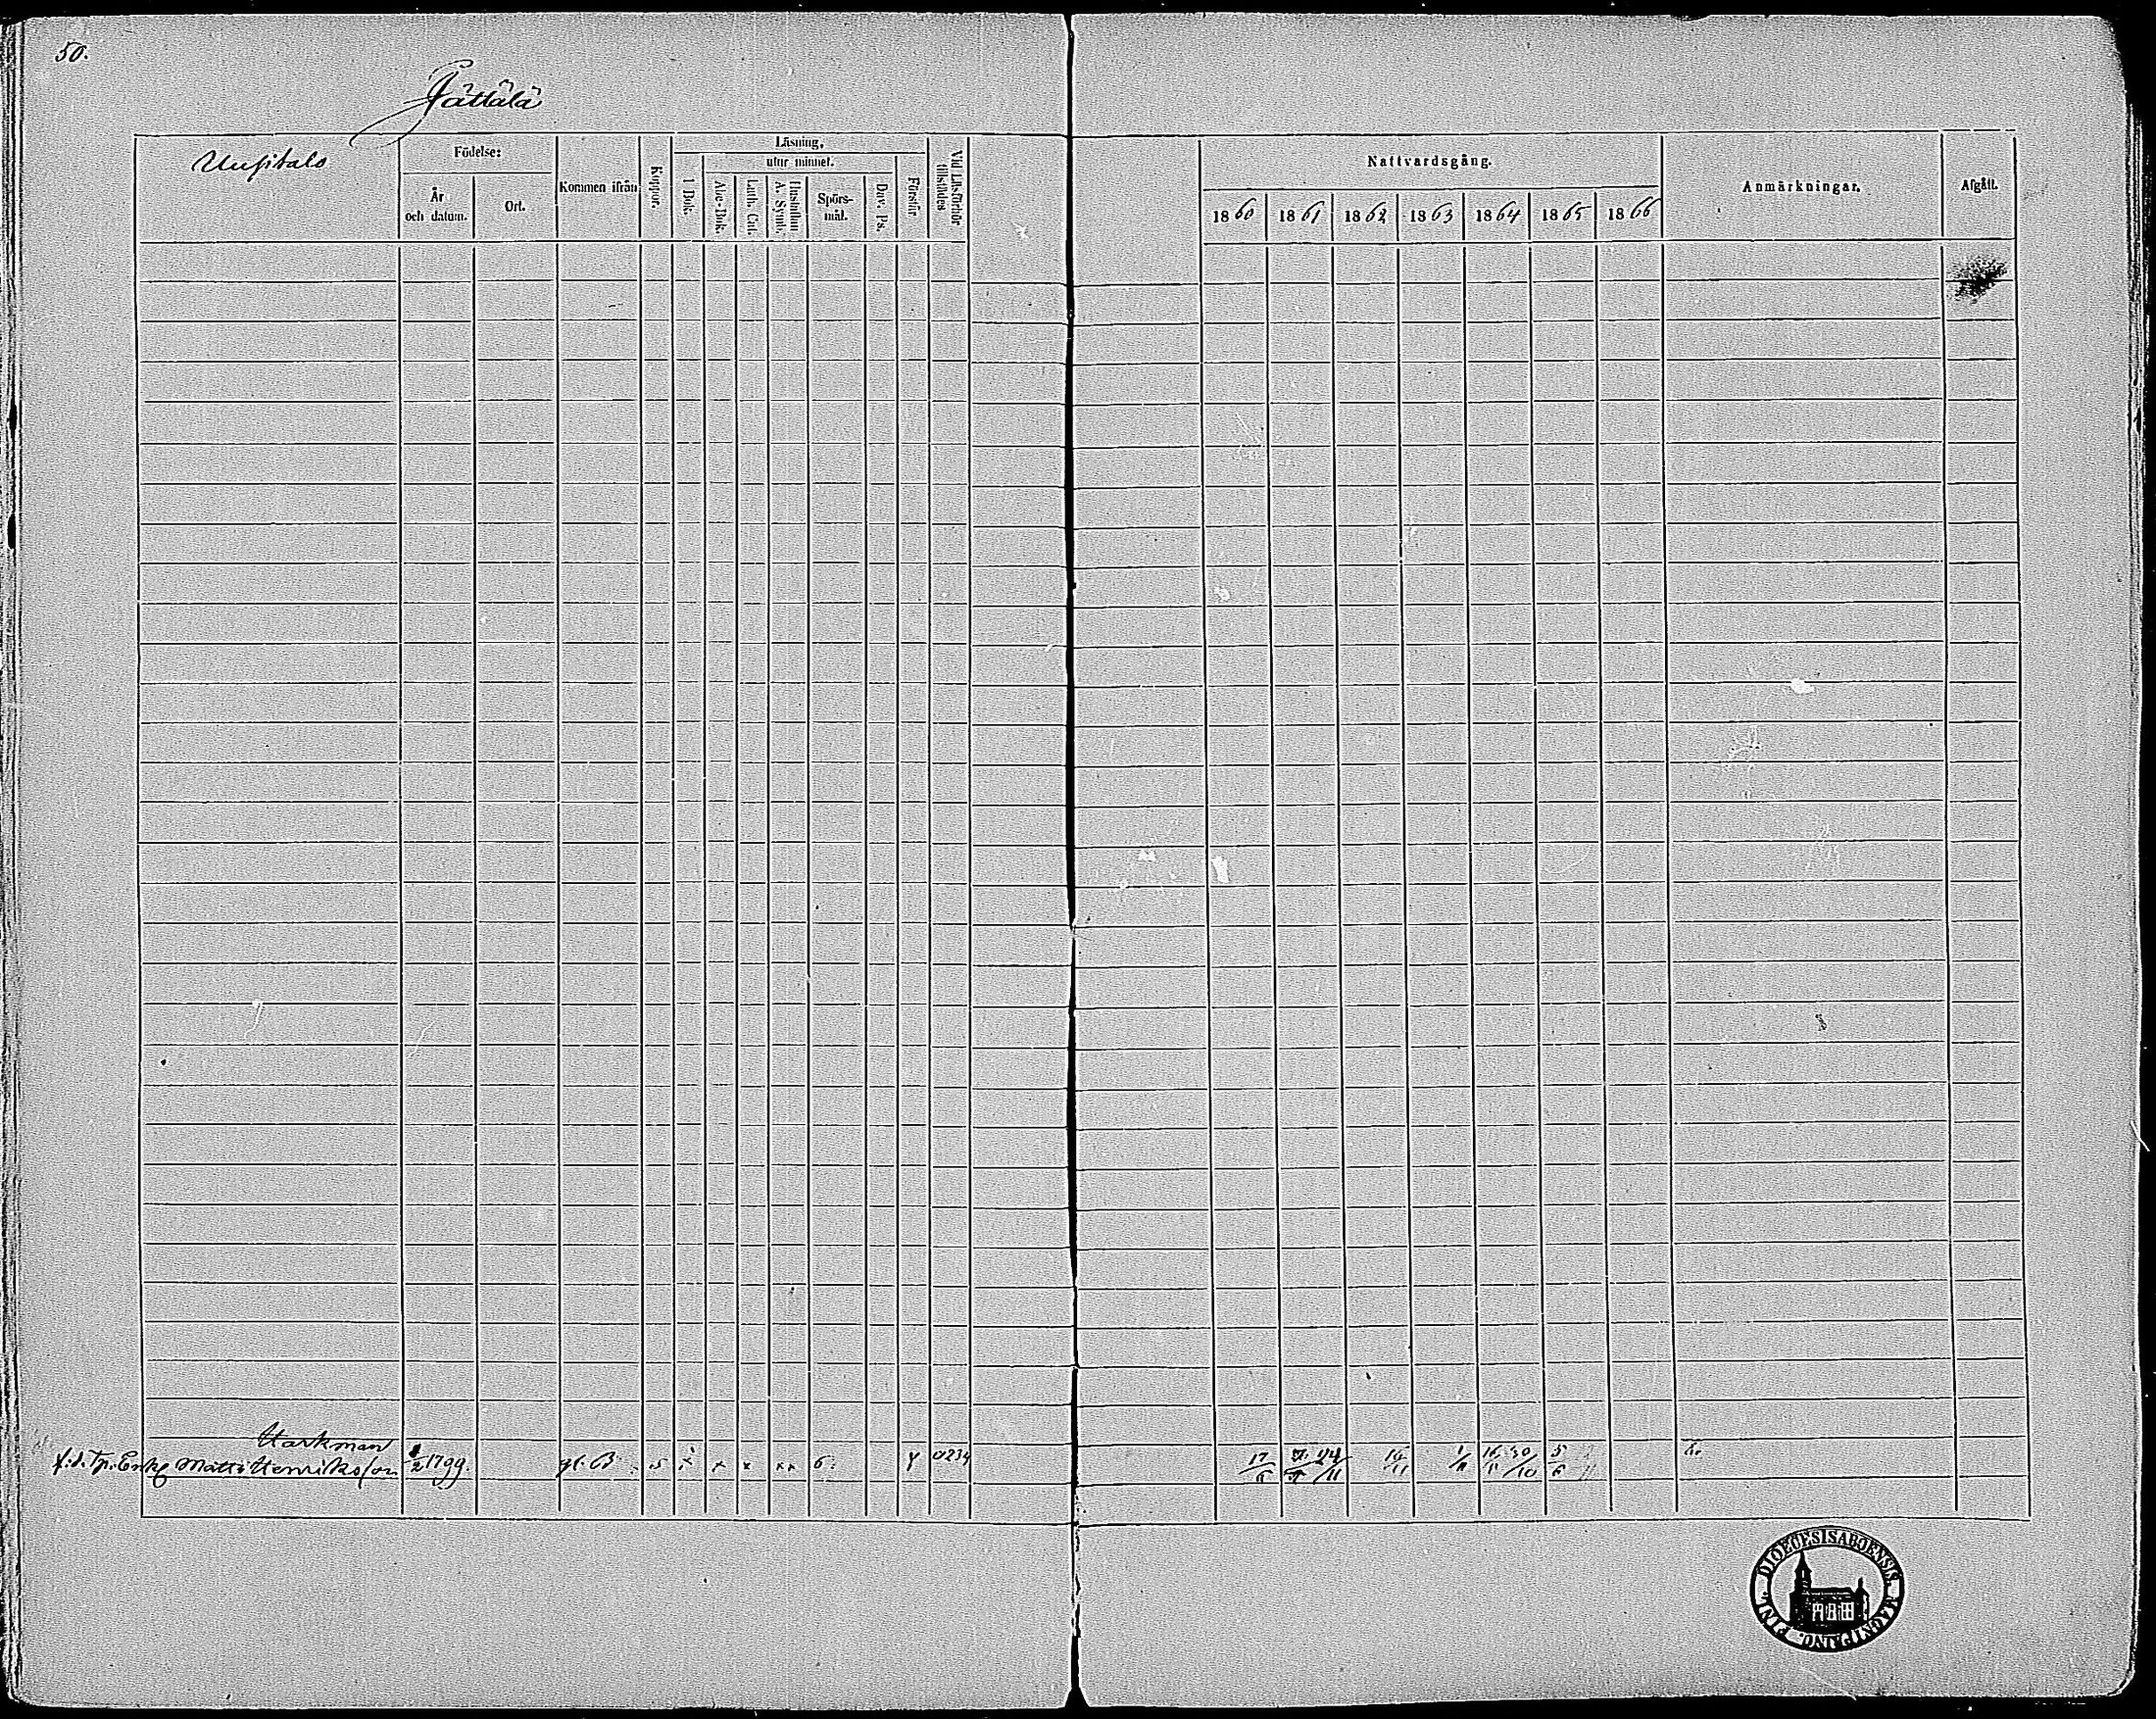 50.
Jättälä
Uusitalo
Födelse:
År och datum.
Ort.
Kommen ifrån
Koppor.
Läsning,
I Bok.
utur minnet.
Abc-Bok.
Luth. Cat.
Hustaflan A. Symb.
Spörs-mål.
Dav. Ps.
Förstår
Vid Läsförhör tillstädes
Nattvardsgång.
1860 1861 1862 1863 1864 1865 1866
Anmärkningar.
Afgått.
Starkman
f.d. Enkl Matts Henriksson 1799. gl. B. x x x xx 6. 0234 17/6 24/11 1/11 30/10 5/6
DIOECESIS ABOENSIS. MAGNI PRINC. FINL.